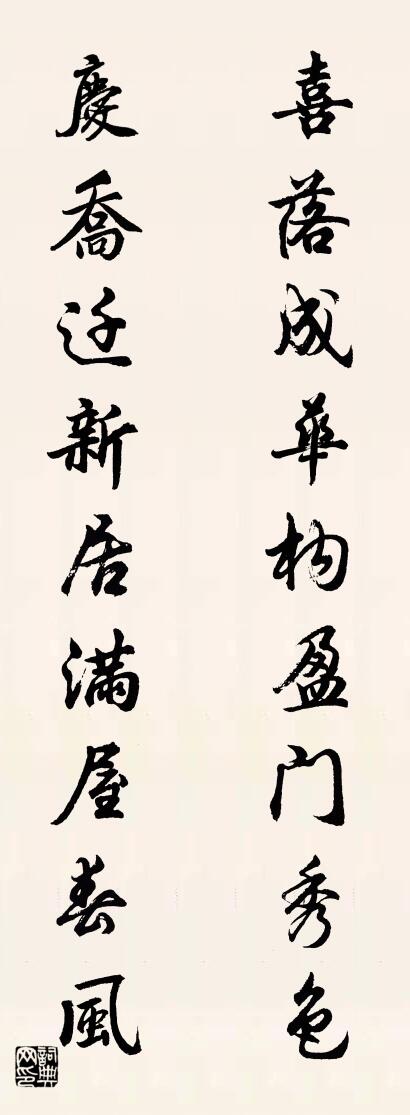 喜落成華构盈门秀色
慶喬迁新居满屋春風
詞典網印